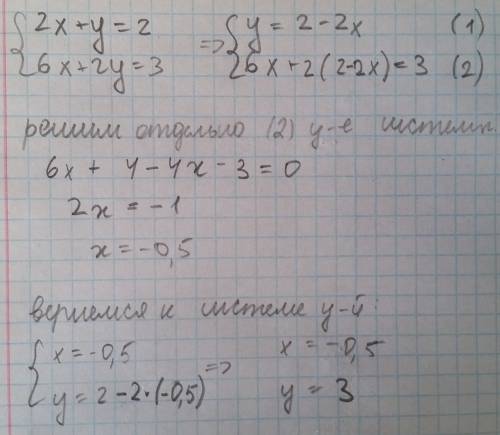 { 2x + y = 2 => { y = 2 - 2x (1)
{ 6x + 2y = 3 { 6x + 2(2-2x) = 3 (2)
решим отдельно (2) у-е системы.
6x + 4 - 4x - 3 = 0
2x = -1
x = -0,5
вернемся к системе у-й:
{ x = -0,5 => x = -0,5
{ y = 2 - 2·(-0,5) y = 3